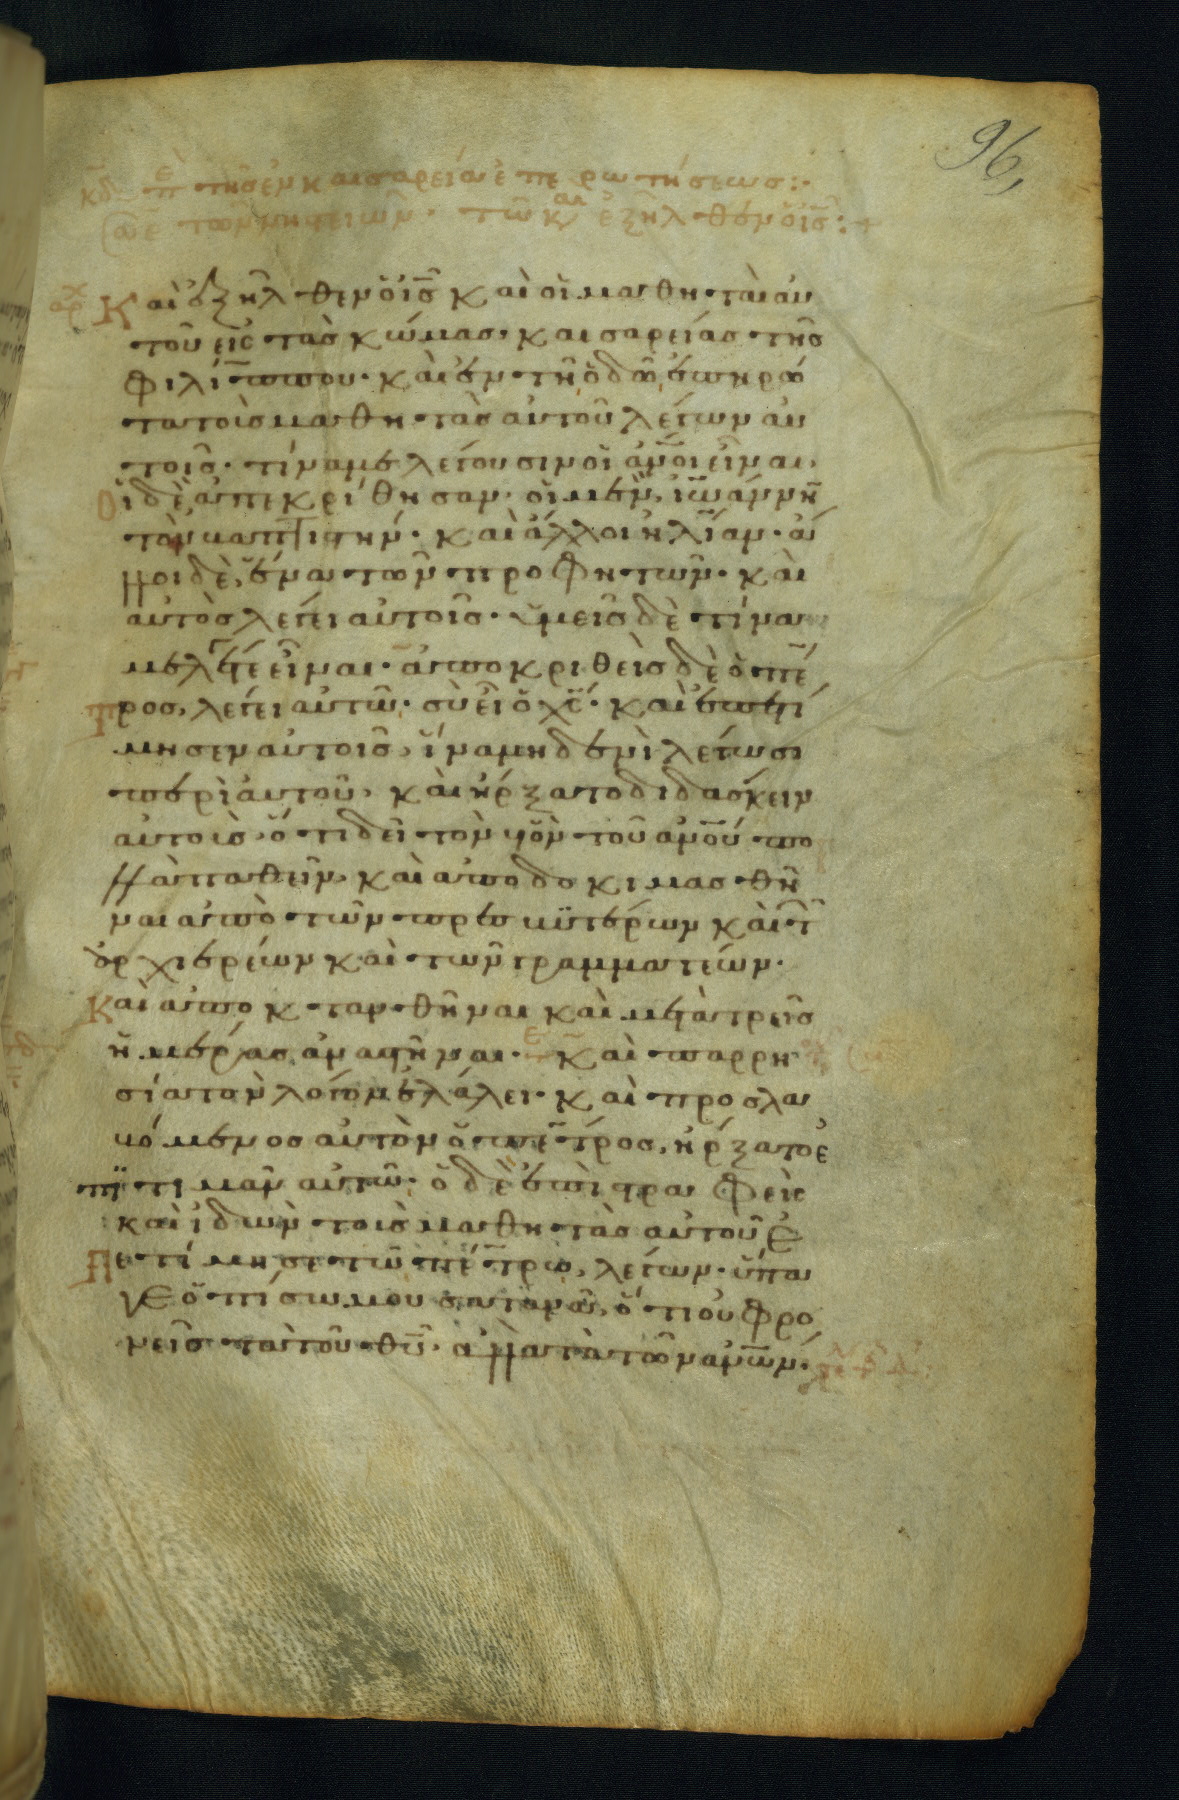 96,
κδ περὶ τῆς ἐν καισαρεία ἐπερωτήσεως:·
τῶ κ, αι ἐξῆλθεν ὁ ις:+
Καὶ ἐξῆλθεν ὁ ις καὶ οἱ μαθηταὶ αυ
τοῦ εἰς τὰς κώμας καισαρείας τῆς
φιλίππου· καὶ ἐν τῆ ὁδῶ ἐπηρώ
τα τοὶς μαθητὰς αὐτοῦ λέγων αυ
τοῖς· τίνα με λέγουσιν οἱ ανοι εἶναι·
Οἱ δὲ ἀπεκρίθησαν· οἱ μὲν, ιωάννην
τὸν βαπτιστήν· καὶ ἄλλοι ηλίαν· ἄ
λλοι δὲ, ἕνα τῶν προφητῶν· καὶ
αὐτὸς λέγει αὐτοῖς· ὑμεῖς δὲ τίνα
με λέγετε εἶναι· ἀποκριθεὶς δὲ ὁ πέ
τρος, λέγει αυτῶ· σὺ εἶ ὁ χς· καὶ ἐπετί
μησεν αὐτοῖς, ἵνα μηδενὶ λέγωσι
περὶ αυτοῦ· καὶ ἤρξατο διδάσκειν
αὐτοὶς ὅτι δεῖ τὸν υἱὸν τοῦ ανου πο
λλὰ παθεῖν καὶ ἀποδοκιμασθῆ
ναι ἀπὸ τῶν πρεσβυτέρων καὶ τ
ἀρχιερέων καὶ τῶν γραμματέων·
Καὶ ἀποκτανθῆναι καὶ μετὰ τρεῖς
ἡμέρας ἀναστῆναι· Καὶ παρρη
σία τὸν λόγον ἐλάλει· καὶ προσλα
βόμενος αὐτὸν ὁ πέτρος, ἤρξατο ἐ
πιτιμᾶν αὐτῶ· ὁ δὲ ἐπιστραφεὶς
καὶ ἰδὼν τοὶς μαθητὰς αὐτοῦ ἐ
Πετίμησε τῶ πέτρω, λέγων· ὕπα
γε ὀπίσω μου σατανᾶ, ὅτι οὐ φρο
νεῖς τὰ τοῦ θυ· ἀλλὰ τὰ τῶν ανων·